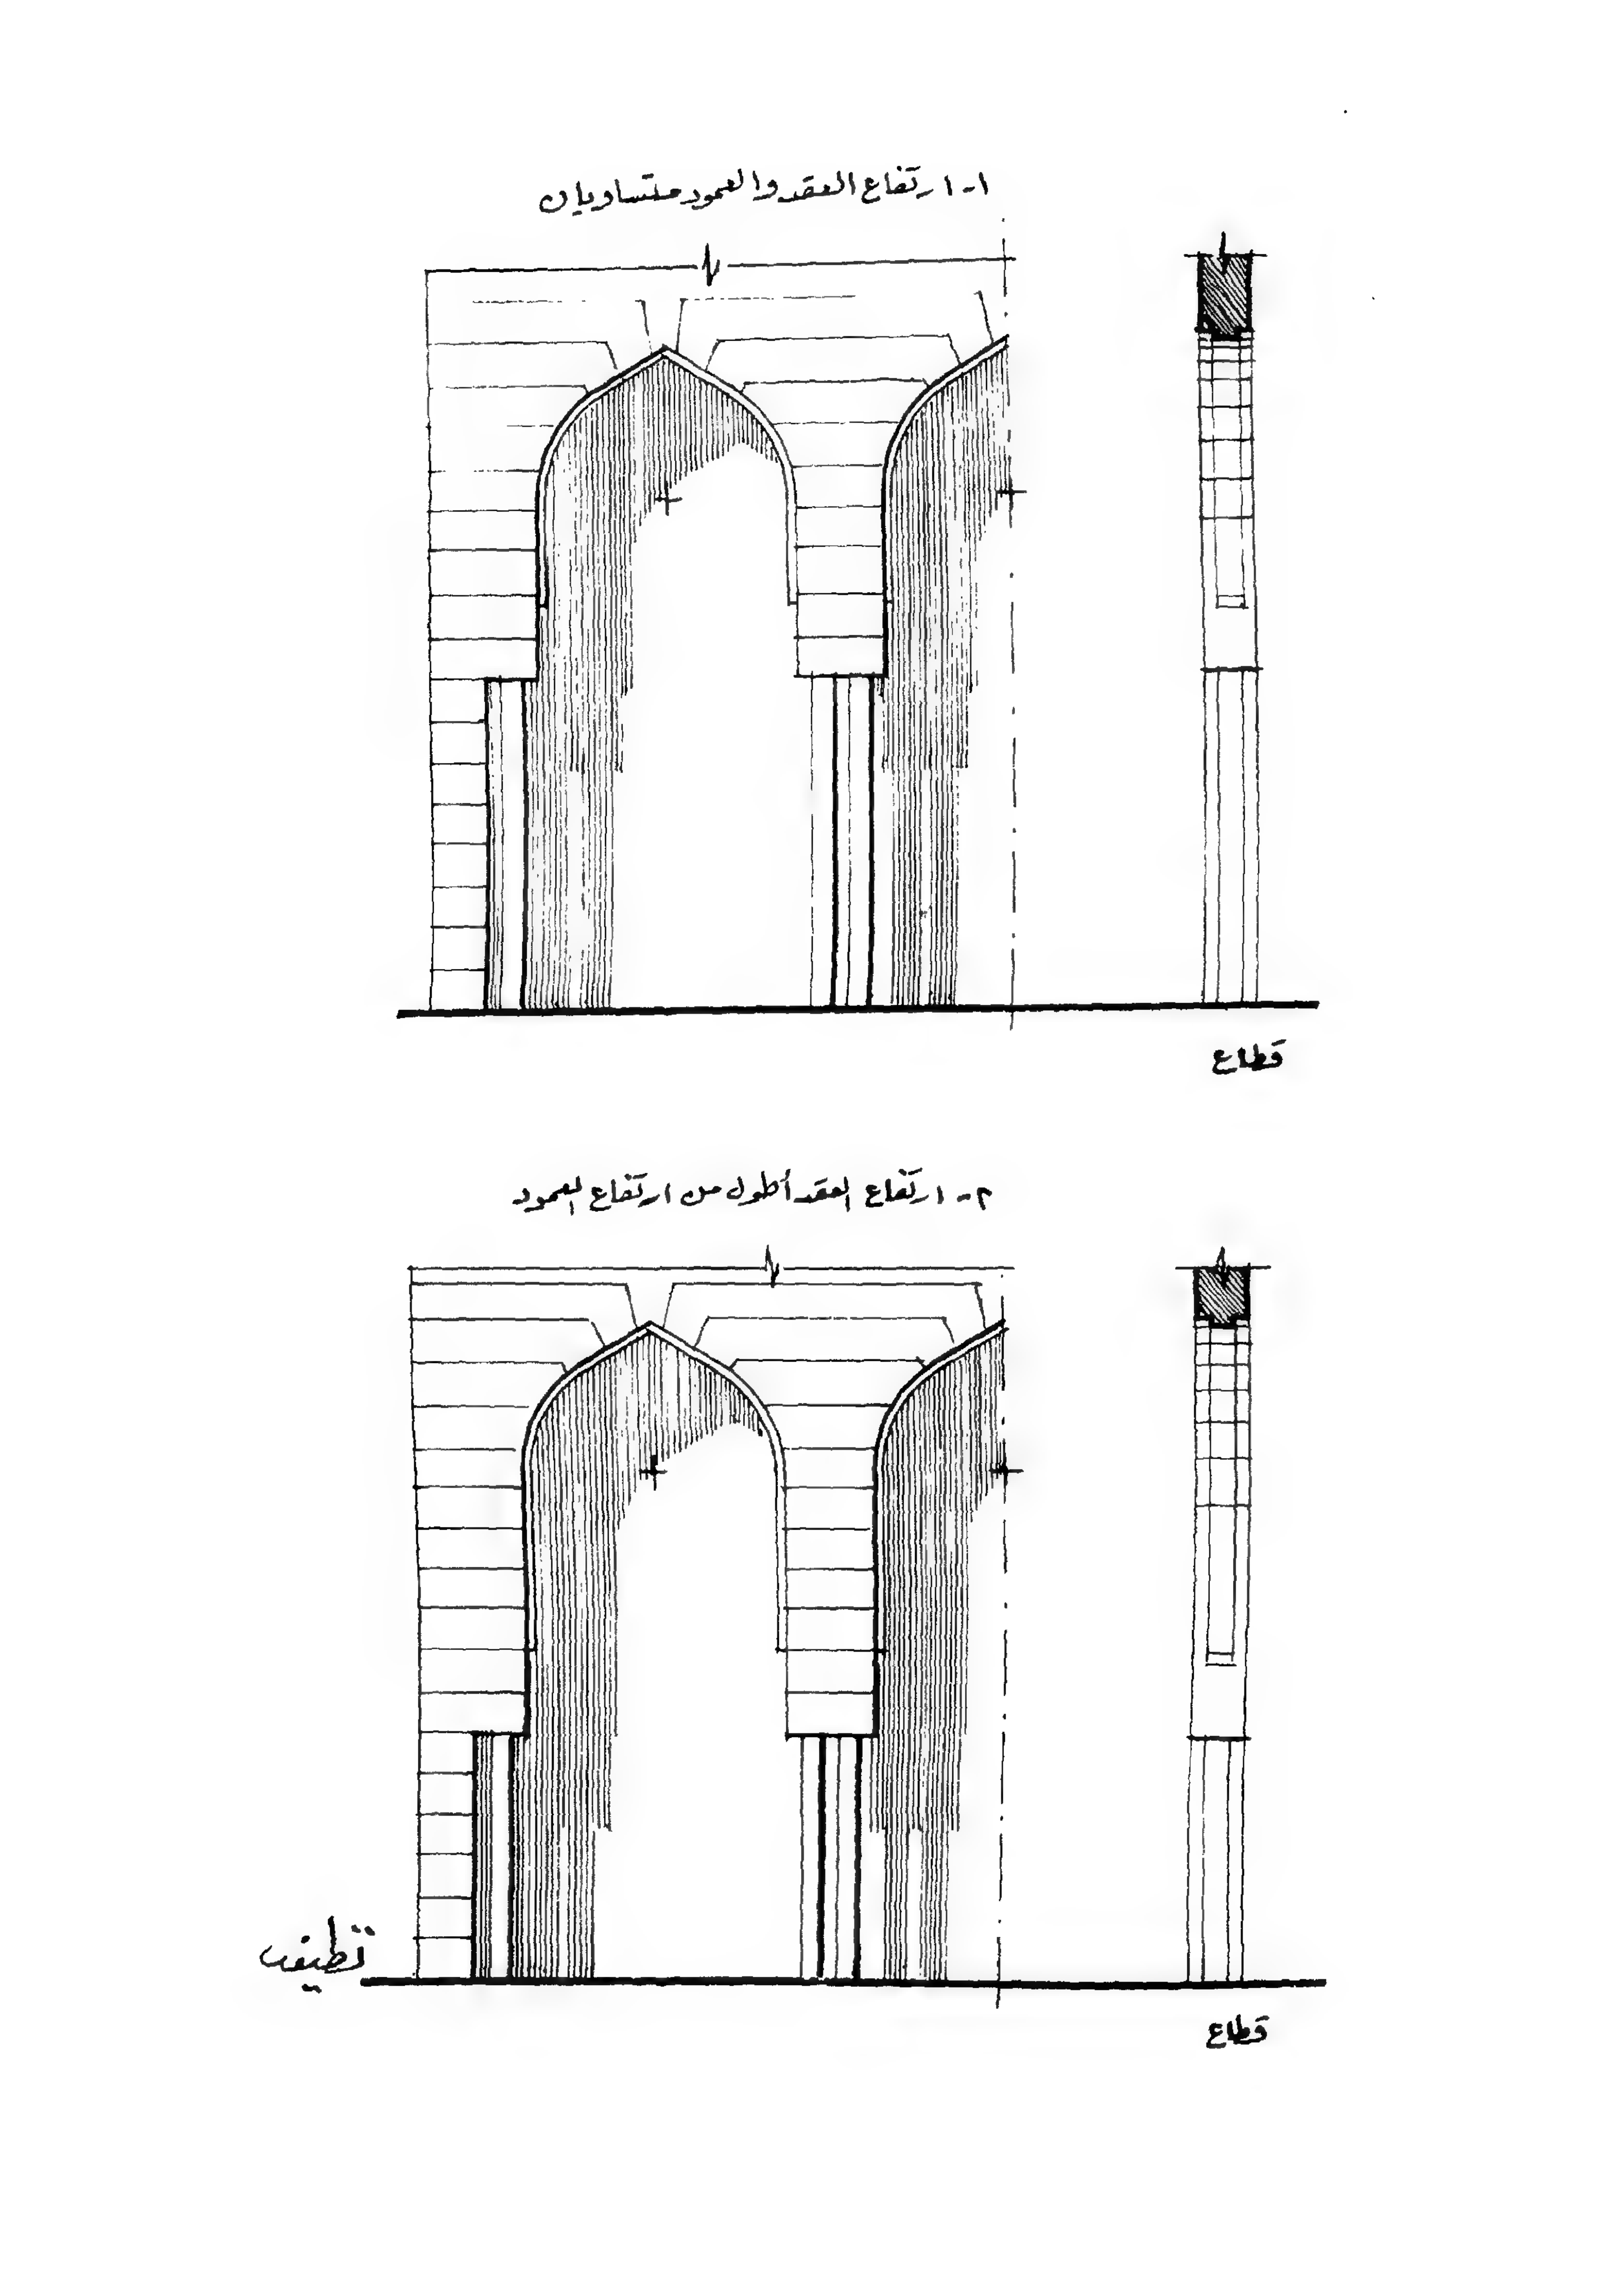 ١- ارتفاع العقد والعمود متساويان
قطاع
٢- ارتفاع العقد أطول من ارتفاع العمود
قطاع